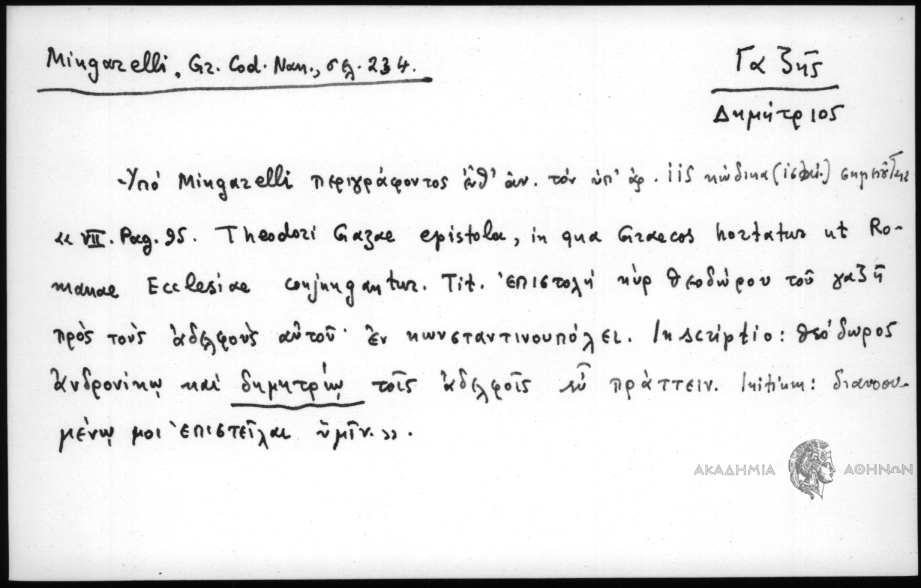 Mingarelli, Gr. Cod. Nan., σελ. 234.
Γαζῆς
Δημήτριος
-Ὑπό Mingarelli περιγράφοντος ἐνθ' ἀν. τόν ὑπ' ἀρ. κώδικα
« VII. Pag. 95. Theodori Gazae epistola, in qua Graecos hortatur ut Ro-
manae Ecclesiae conjungantur. Tit. Ἐπιστολή κύρ θεοδώρου τοῦ γαζῆ
πρός τούς ἀδελφούς αὐτοῦ ἐν κωνσταντινουπόλει. Inscriptio: θεόδωρος
ἀνδρονίκῳ καί δημητρίῳ τοῖς ἀδελφοῖς εὖ πράττειν. Initium: διανοου-
μένῳ μοι ἐπιστεῖλαι ὑμῖν.».
ΑΚΑΔΗΜΙΑ ΑΘΗΝΩΝ